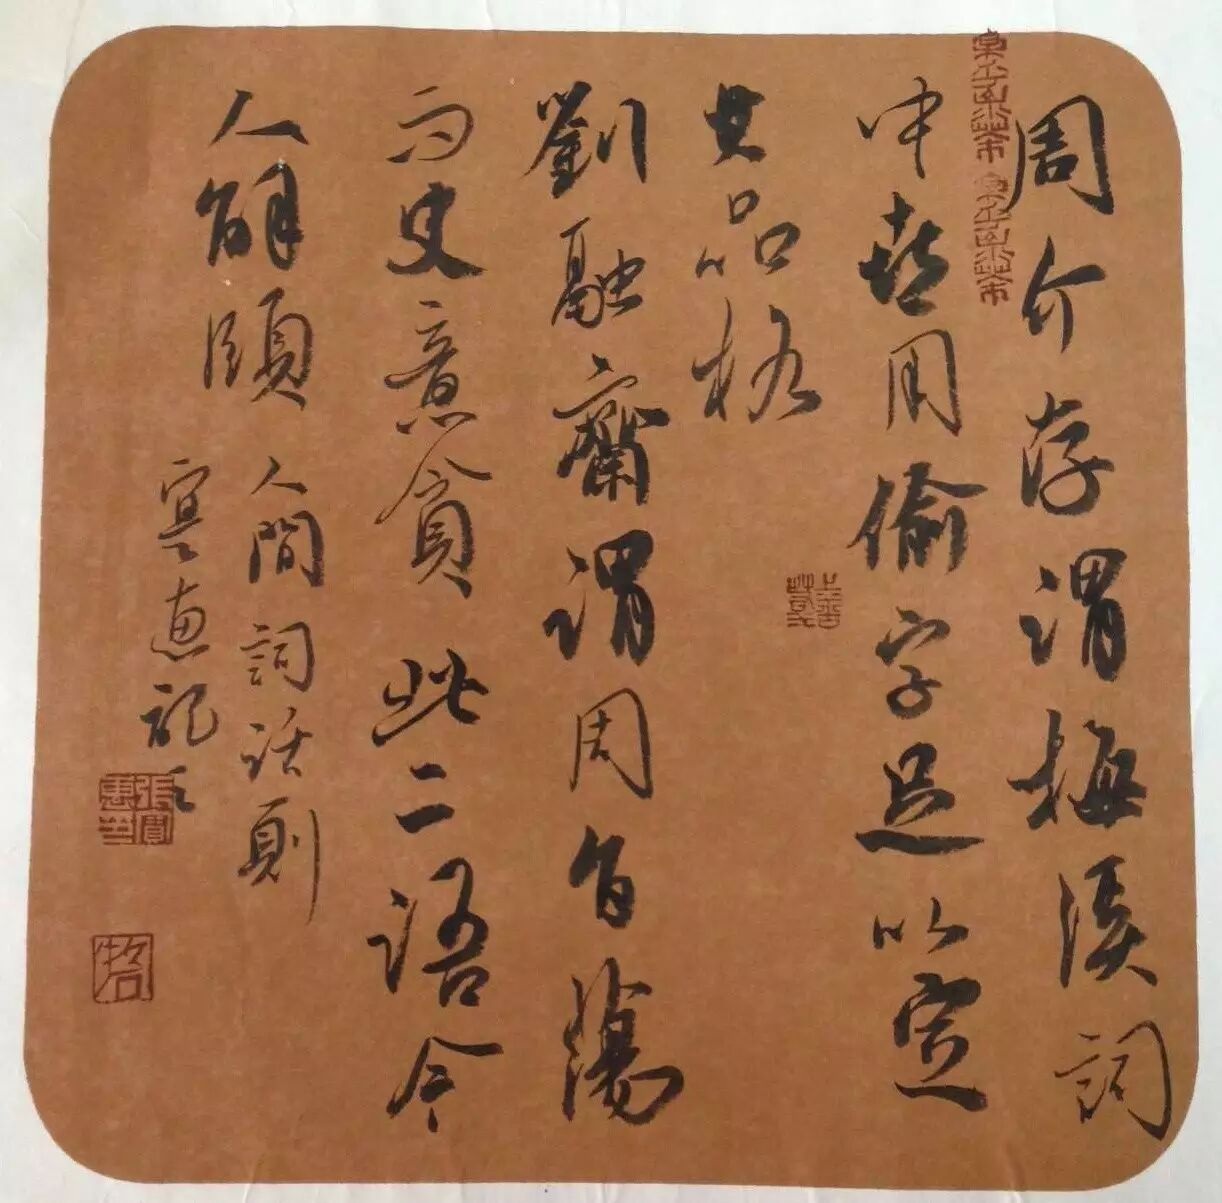 周介存謂梅溪詞
中喜用偷字足以定
其品格
劉融齋謂周旨蕩
而史意貪此二語令
人解頤
人間詞話則
寅惠記
張寅惠印